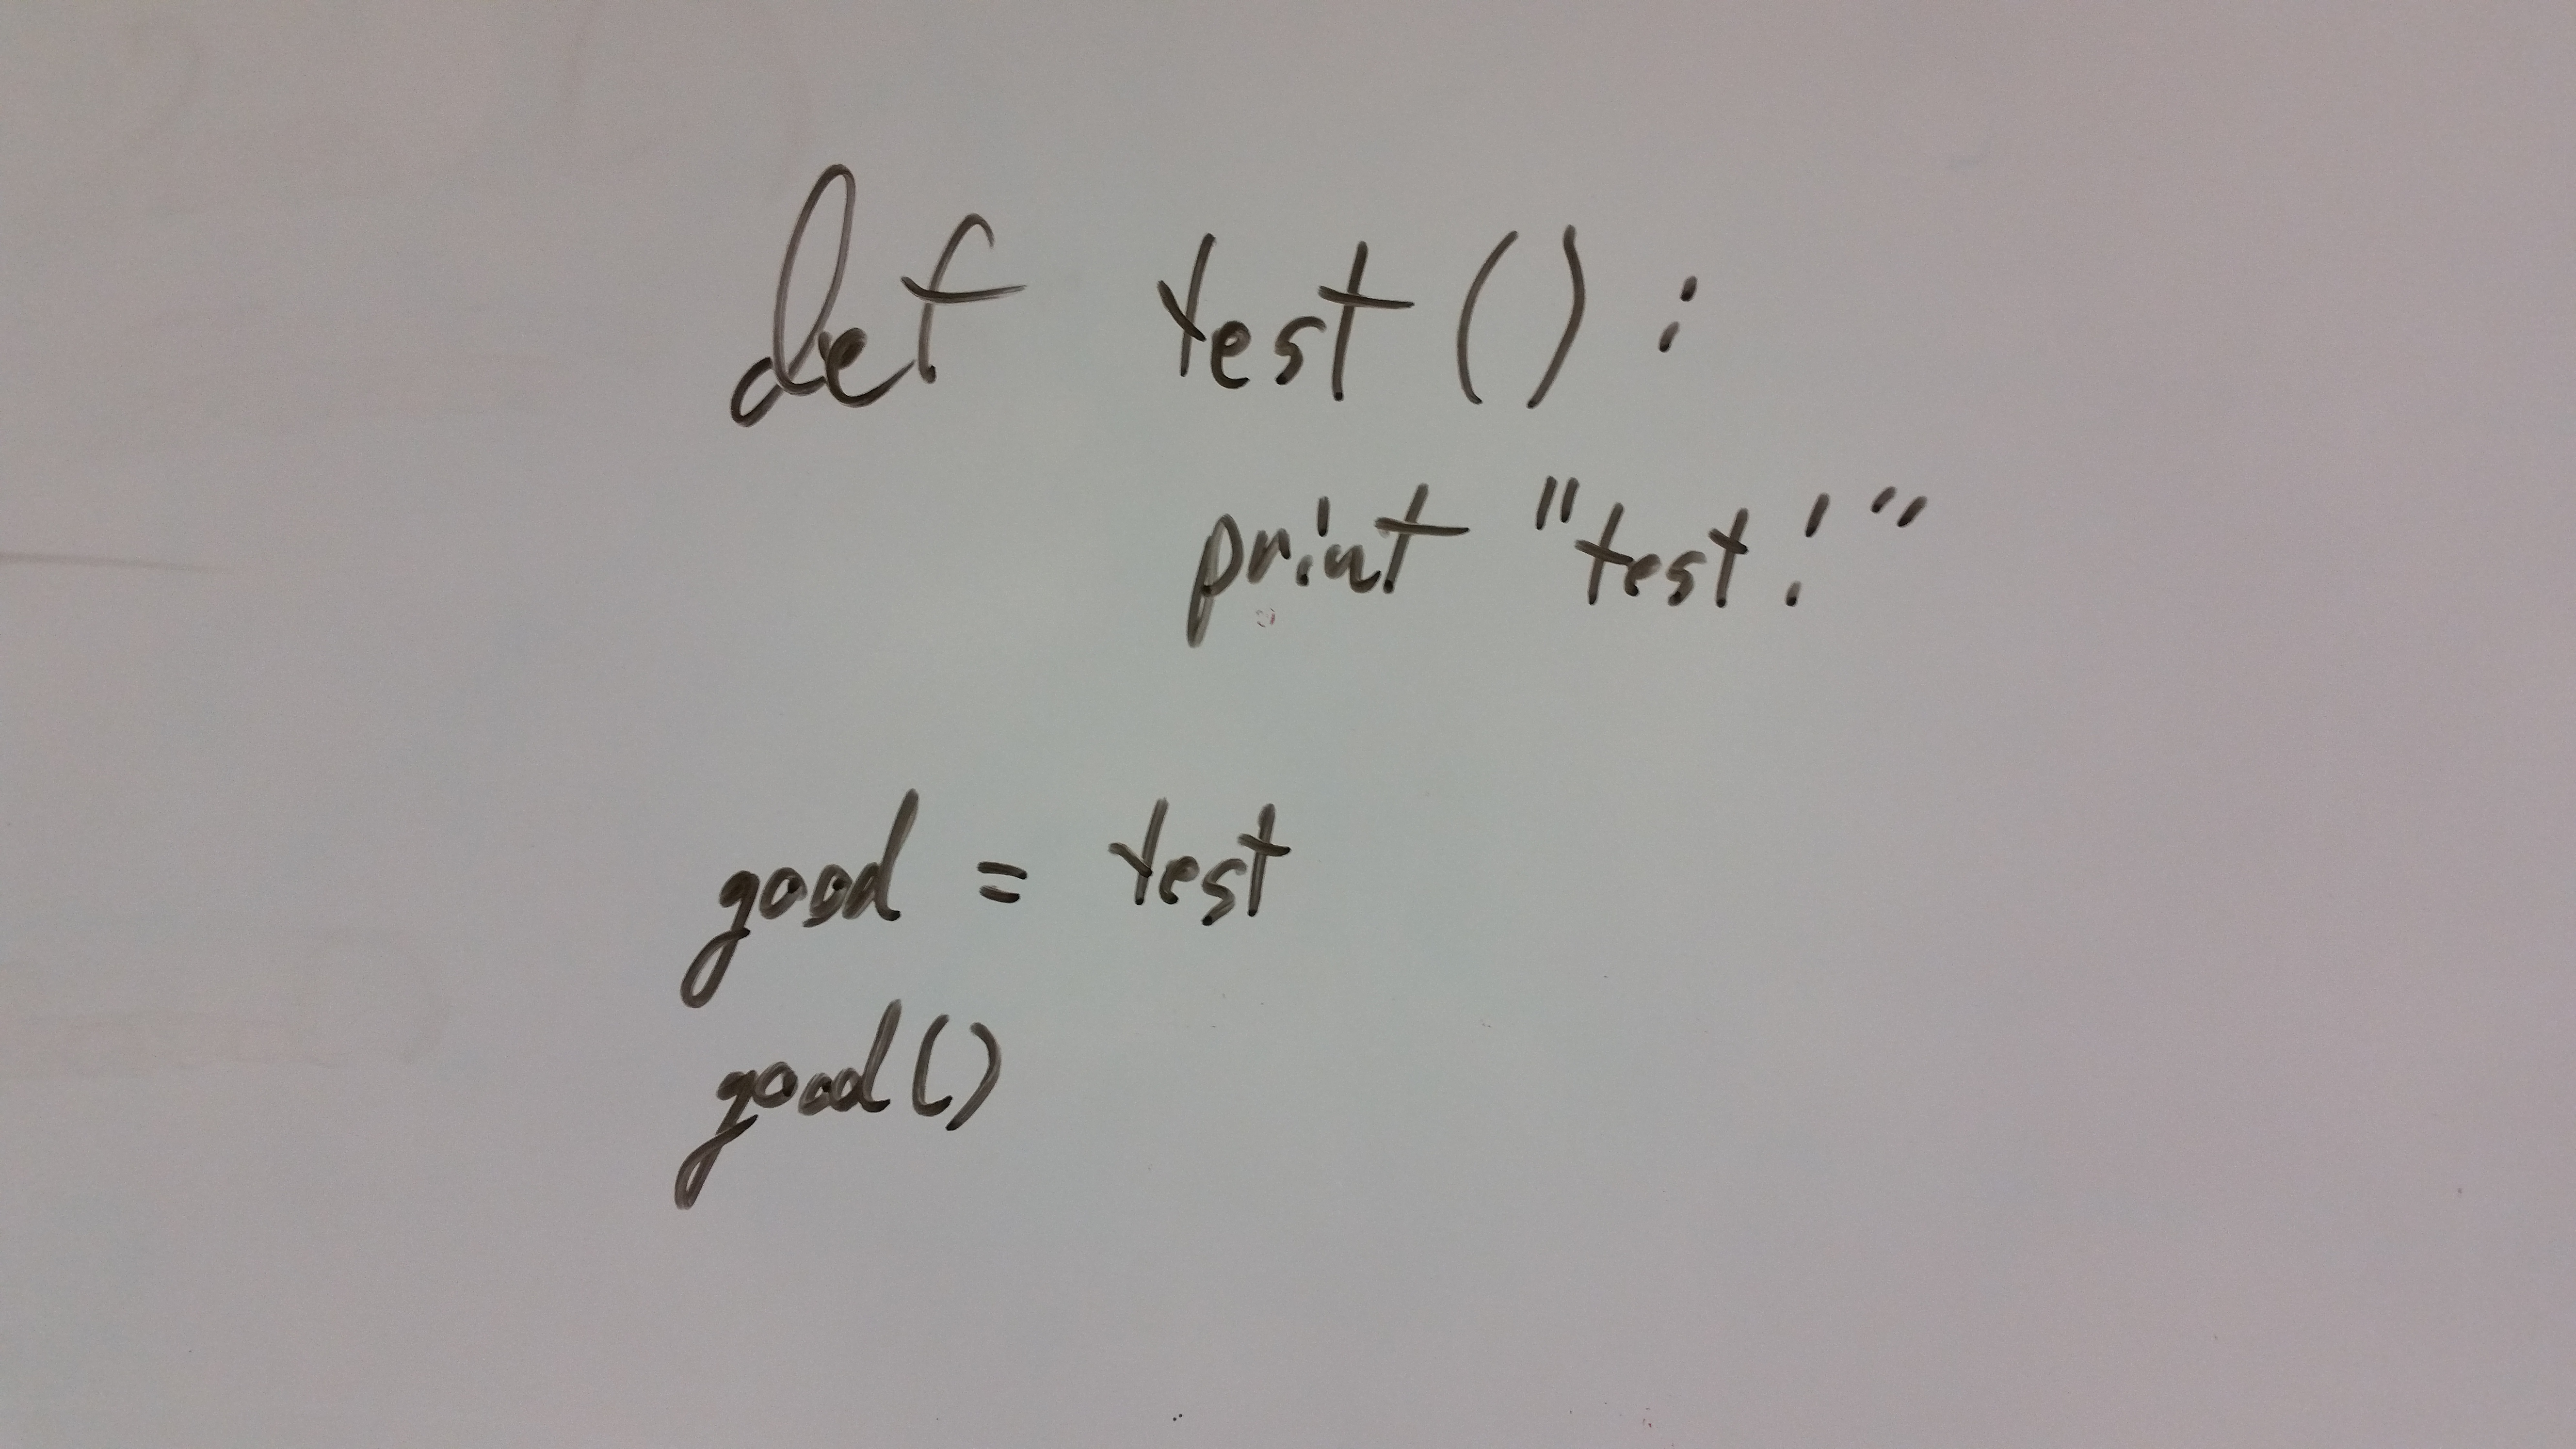 def test():
print "test!"
good = test
good()